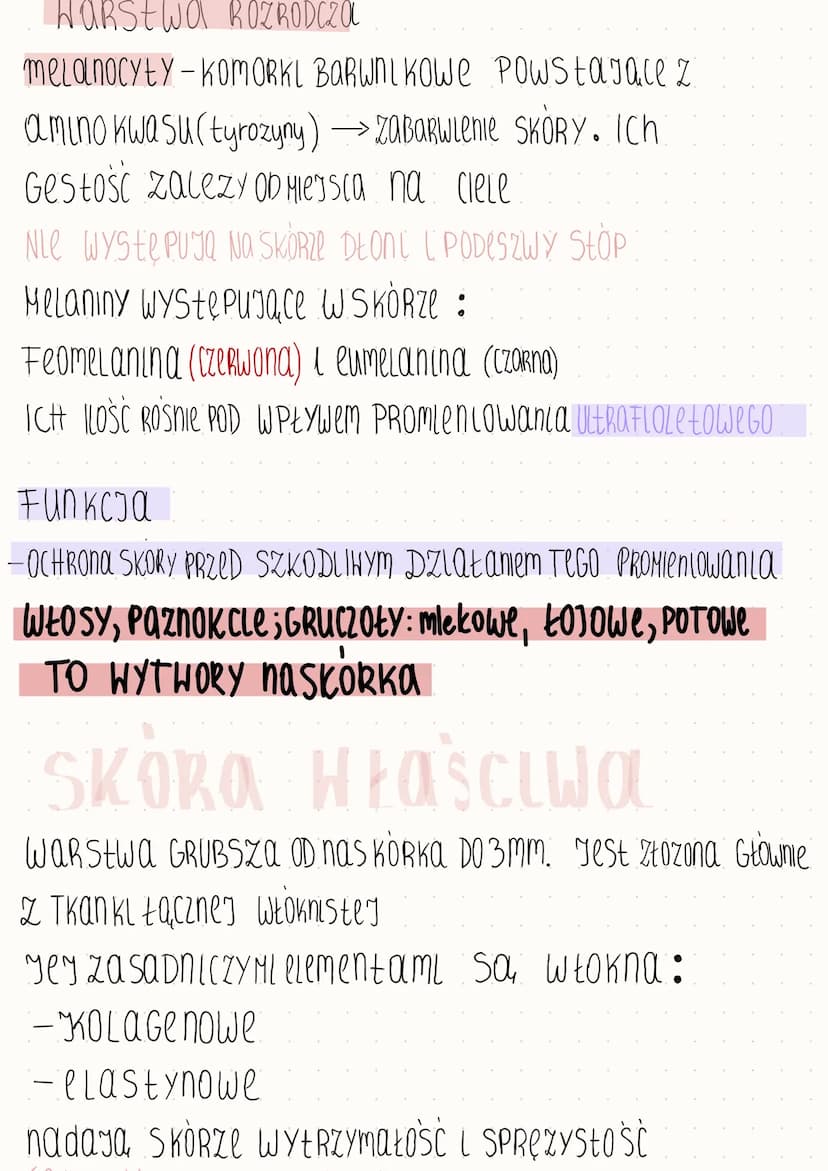 WARSTWA ROZRODCZA
melanocyty - KOMORKI BARWNIKOWE POWSTAJĄCE Z
aminokwasu (tyrozyny) → ZABARWIENIE SKÓRY. ICH
GĘSTOŚĆ ZALEZY OD MIEJSCA na CIELE
NIE WYSTĘPUJĄ NA SKÓRZE DŁONI I PODESZWY STÓP
MELANINY WYSTĘPUJĄCE W SKÓRZE :
FEOMELANINA (CZERWONA) I EUMELANINA (CZARNA)
ICH ILOŚĆ ROŚNIE POD WPŁYWEM PROMIENIOWANIA ULTRAFIOLETOWEGO
FUNKCJA
- OCHRONA SKÓRY PRZED SZKODLIWYM DZIAŁANIEM TEGO PROMIENIOWANIA
WŁOSY, PAZNOKCIE; GRUCZOŁY: mlekowe, ŁOJOWE, POTOWE
TO WYTWORY NASKÓRKA
SKÓRA WŁAŚCIWA
WARSTWA GRUBSZA OD NASKÓRKA DO 3MM. JEST ZŁOZONA GŁÓWNIE
Z TKANKI ŁĄCZNEJ WŁÓKNISTEJ
JEJ ZASADNICZYMI ELEMENTAMI SĄ WŁÓKNA :
- KOLAGENOWE
- ELASTYNOWE
nadają SKÓRZE WYTRZYMAŁOŚĆ I SPRĘZYSTOŚĆ